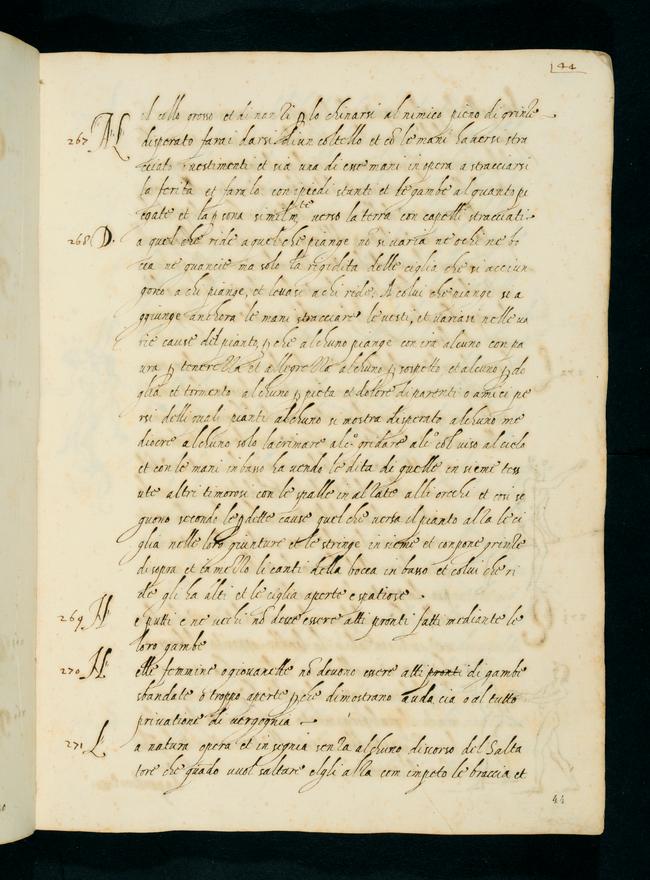 44
el collo grosso et dinanzi p lo chinarsi al nimico pieno di grinze
267 Al disperato farai darsi di un coltello et cō le mani haversi stra
cciato i vestimenti et sia una di esse mani in opera a stracciarsi
la ferita et faralo con ipiedi stanti et le gambe alquanto pi
egate et la psona similmte verso la terra con capelli stracciati
268 D. a quel che ride a quel che piange nō si varia ne ochi ne bo
cca ne guancie ma solo la rigidita delle ciglia che si aggiun
gono a chi piange, et levasi a chi ride. A colui che piange si a
ggiunge anchora le mani stracciare le vesti, et variasi nelle va
rie cause del pianto, p che alchuno piange con ira alcuno con pa
ura p tenerezza et allegrezza alchuno p sospetto et alcuno p do
glia et tormento alchuno p pieta et dolore di parenti o amici pe
rsi delli quali pianti alchuno si mostra disperato alchuno me
diocre alchuno solo lacrimare alco gridare alco col viso al cielo
et con le mani in basso ha vendo le dita di quelle in sieme tess
ute altri timorosi con le spalle in alzate alli orechi et cosi se
guono secondo le pdette cause quel che versa il pianto alza le ci
glia nelle loro giunture et le stringe in sieme et conpone grinze
di sopra et in mezzo li canti della bocca in basso et colui che ri
de gli ha alti et le ciglia aperte e spatiose
269 N e putti e ne vechi nō deve essere atti pronti fatti mediante le
loro gambe
270 N elle femmine o giovanette nō devono essere atti pronti di gambe
sbandate o troppo aperte p che dimostrano auda cia o al tutto
privatione di vergognia
271 L a natura opera et in segnia senza alchuno discorso del Salta
tore che quādo vuol saltare elgli alza com impeto le braccia et
44